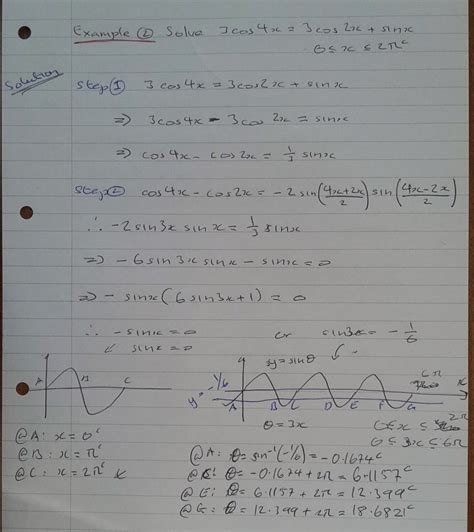 Example ② Solve 3cos4x = 3cos2x + sinx
0 ≤ x ≤ 2π^c
Solution
Step ① 3cos4x = 3cos2x + sinx
⇒ 3cos4x - 3cos2x = sinx
⇒ cos4x - cos2x = 1/3 sinx
Step ② cos4x - cos2x = -2sin((4x+2x)/2) sin((4x-2x)/2)
∴ -2sin3x sinx = 1/3 sinx
⇒ -6sin3x sinx - sinx = 0
⇒ -sinx(6sin3x+1) = 0
∴ -sinx = 0 or sin3x = -1/6
sinx = 0
y = sinθ
A B C
y = -1/6
A B C D E F G
6π
x
θ = 3x
0 ≤ x ≤ 2π
0 ≤ 3x ≤ 6π
@A: x = 0^c
@B: x = π^c
@C: x = 2π^c
@A: θ = sin⁻¹(-1/6) = -0.1674^c
@C: θ = -0.1674 + 2π = 6.1157^c
@E: θ = 6.1157 + 2π = 12.399^c
@G: θ = 12.399 + 2π = 18.6821^c